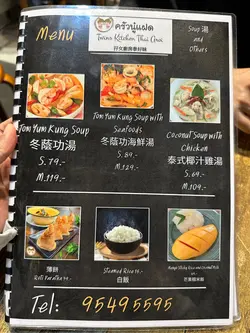 Menu
ครัวนู๋แฝด
Twins Kitchen Thai Chai
孖女廚房泰好味
Soup 湯
and
Others
Tom Yum Kung Soup
冬蔭功湯
S.79.-
M.119.-
Tom Yum Kung Soup with
Seafoods
冬蔭功海鮮湯
S.89.-
M.129.-
Coconut Soup with
Chicken
泰式椰汁雞湯
S.69.-
M.109.-
薄餅
Roti Paratha
Steamed Rice
白飯
芒果糯米飯
Tel: 95495595